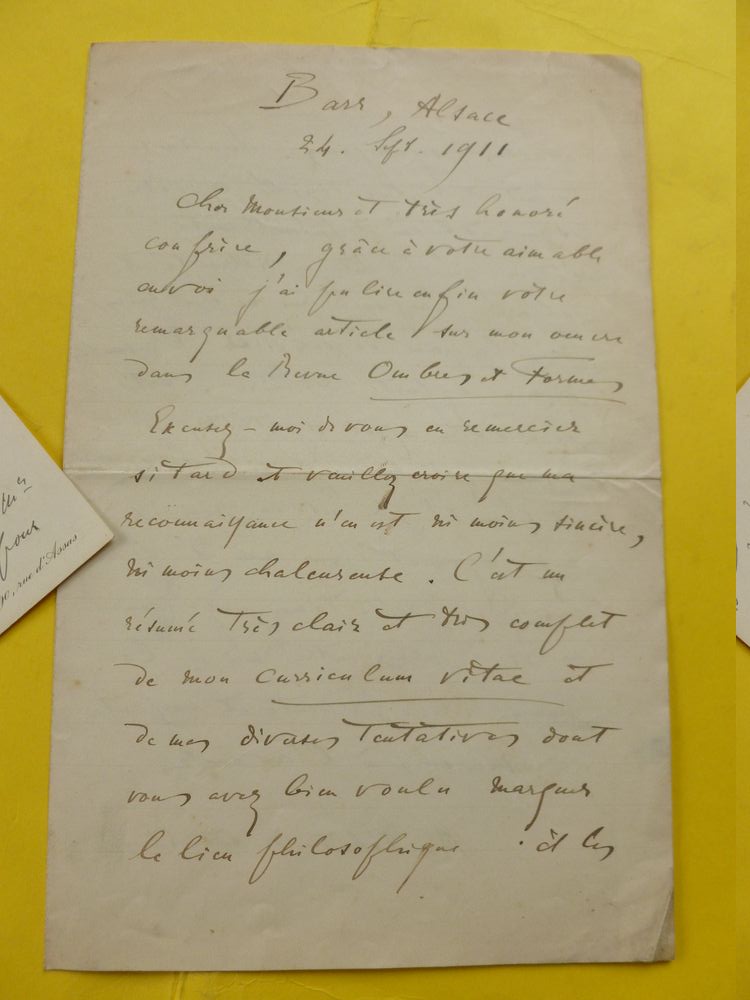 Barr, Alsace
24. Sept. 1911
Cher Monsieur et très honoré
confrère, grâce à votre aimable
envoi j'ai pu lire enfin votre
remarquable article sur mon oeuvre
dans la Revue Ombres et Formes
Excusez-moi de vous en remercier
si tard et veuillez croire que ma
reconnaissance n'en est ni moins sincère,
ni moins chaleureuse. C'est un
résumé très clair et très complet
de mon curriculum vitae et
de mes diverses tentatives dont
vous avez bien voulu marquer
le lien philosophique et les
90, rue d'Assas